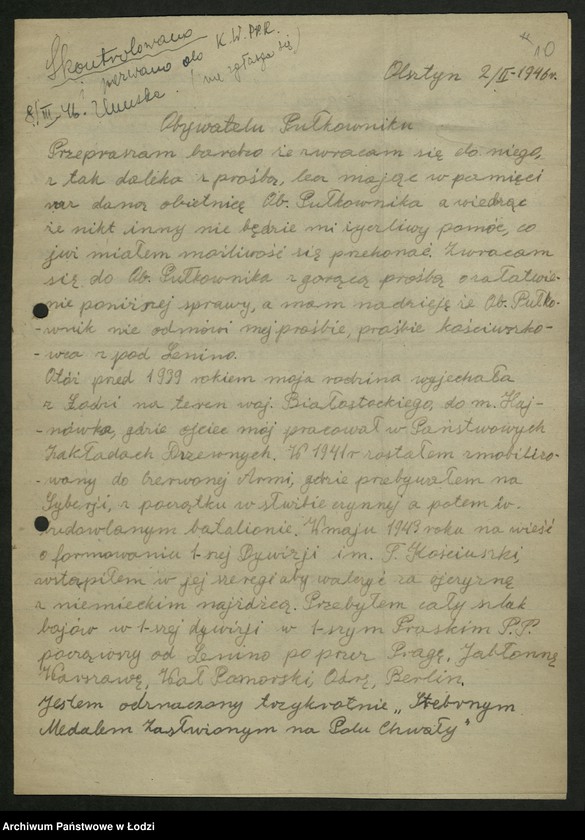 Skontrolowano
i pozwano do K.W. P.P.R.
8/III-46. (nie zgłasza się)
10
Olsztyn 2/II-1946r.
Obywatelu Pułkowniku
Przepraszam bardzo że zwracam się do niego,
z tak daleka z prośbą, lecz mając w pamięci
raz daną obietnicę Ob. Pułkownika a wiedząc
że nikt inny nie będzie mi życzliwy pomóc, co
już miałem możliwość się przekonać. Zwracam
się do Ob. Pułkownika z gorącą prośbą o załatwie-
nie poniższej sprawy, a mam nadzieję że Ob. Pułko-
-wnik nie odmówi mej prośbie, prośbie kościuszko-
-wca z pod Lenino.
Otóż przed 1939 rokiem moja rodzina wyjechała
z Łodzi na teren woj. Białostockiego, do m. Haj-
-nówka, gdzie ojciec mój pracował w Państwowych
Zakładach Drzewnych. W 1941r zostałem zmobilizo-
-wany do Czerwonej Armi, gdzie przebywałem na
Syberji, z początku w służbie czynnej a potem w
budowlanym batalionie. W maju 1943 roku na wieść
o formowaniu 1-szej Dywizji im. T. Kościuszki
wstąpiłem w jej szeregi aby walczyć za ojczyznę
z niemieckim najeźdźcą. Przebyłem cały szlak
bojów w 1-szej dywizji w 1-szym Praskim P.P.
począwszy od Lenino poprzez Pragę, Jabłonnę
Warszawę, Wał Pomorski Odrę, Berlin.
Jestem odznaczony trzykrotnie „Srebrnym
Medalem Zasłużonym na Polu Chwały"
Archiwum Państwowe w Łodzi